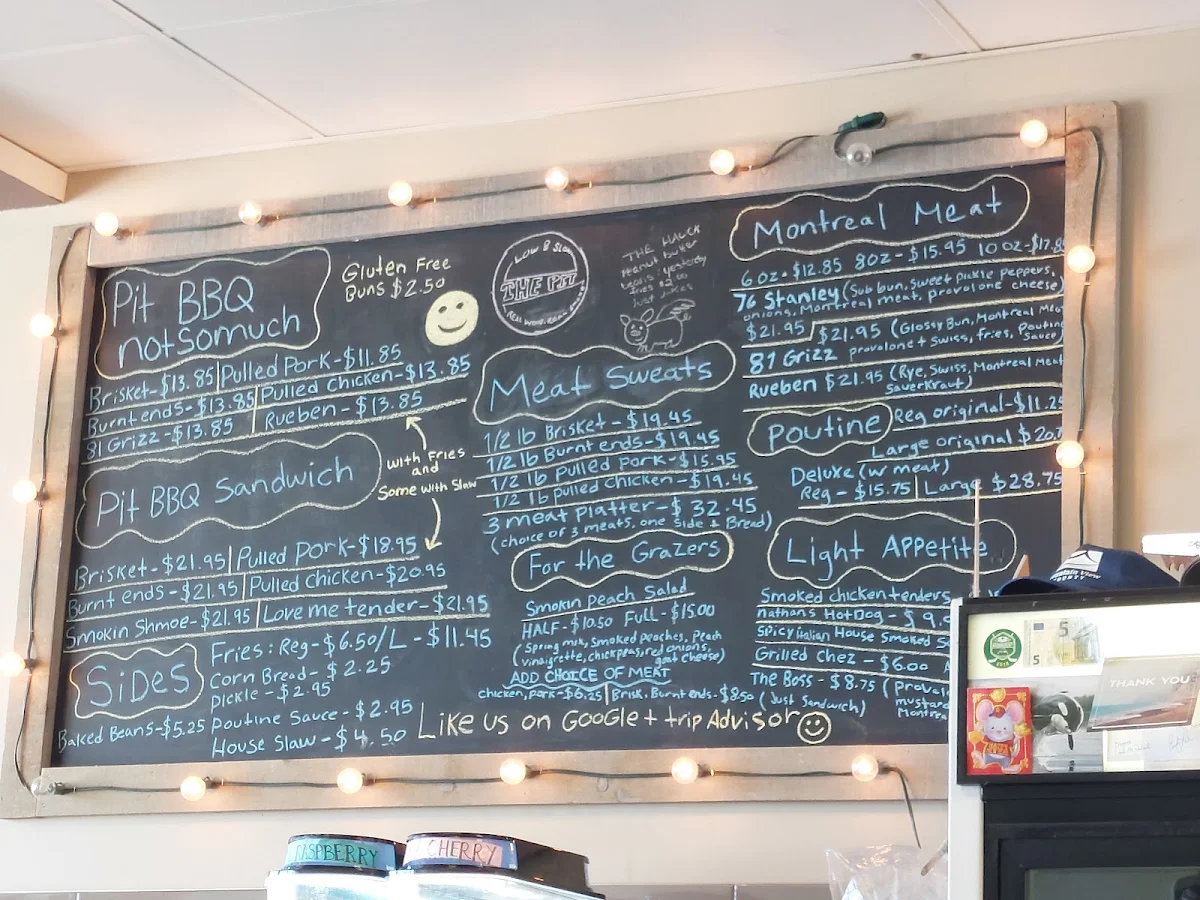 Pit BBQ
not so much
Gluten Free
Buns $2.50
Brisket-$13.85|Pulled Pork-$11.85
Burnt ends-$13.85|Pulled Chicken-$13.85
81 Grizz-$13.85|Rueben-$13.85
with Fries
and
Some with Slaw
Pit BBQ Sandwich
Brisket-$21.95|Pulled Pork-$18.95
Burnt ends-$21.95|Pulled chicken-$20.95
Smokin Shmoe-$21.95|Love me tender-$21.95
Sides
Fries: Reg-$6.50/L-$11.45
Corn Bread-$2.25
pickle-$2.95
Baked Beans-$5.25 Poutine Sauce-$2.95
House Slaw-$4.50
LOW & SLOW
THE PIT
THE HAWCK
Peanut butter
yesterday
Just Jokes
Meat Sweats
1/2 lb Brisket-$19.45
1/2 lb Burnt ends-$19.45
1/2 lb Pulled Pork-$15.95
1/2 lb Pulled Chicken-$19.45
3 meat platter-$32.45
(choice of 3 meats, one side & Bread)
For the Grazers
Smokin Peach Salad
HALF-$10.50 Full-$15.00
(Spring mix, smoked peaches, Peach
vinaigrette, chickpeas, red onions,
goat cheese)
ADD CHOICE OF MEAT
chicken, pork-$6.25|Brisk, Burnt ends-$8.50
Like us on GOOGLE+ trip Advisor
Montreal Meat
6oz-$12.85 8oz-$15.95 10oz-$17.8
76 Stanley (Sub bun, Sweet pickle peppers,
onions, Montreal meat, provalone cheese)
$21.95
$21.95 (Glossy Bun, Montreal Mea
81 Grizz provalone + Swiss, fries, Poutine
Sauce)
Rueben $21.95 (Rye, Swiss, Montreal Meat
Sauerkraut)
Poutine Reg original-$11.25
Large original $20.7
Deluxe (w meat)
Reg-$15.75|Large $28.75
Light Appetite
Smoked chicken tenders
nathans HotDog-$9.
Spicy Italian House Smoked S
Grilled Chez-$6.00
The Boss-$8.75 (Proval
(Just Sandwich) mustard
Montrea
RASPBERRY
CHERRY
Mountain View
COUNTY
5
THANK YOU